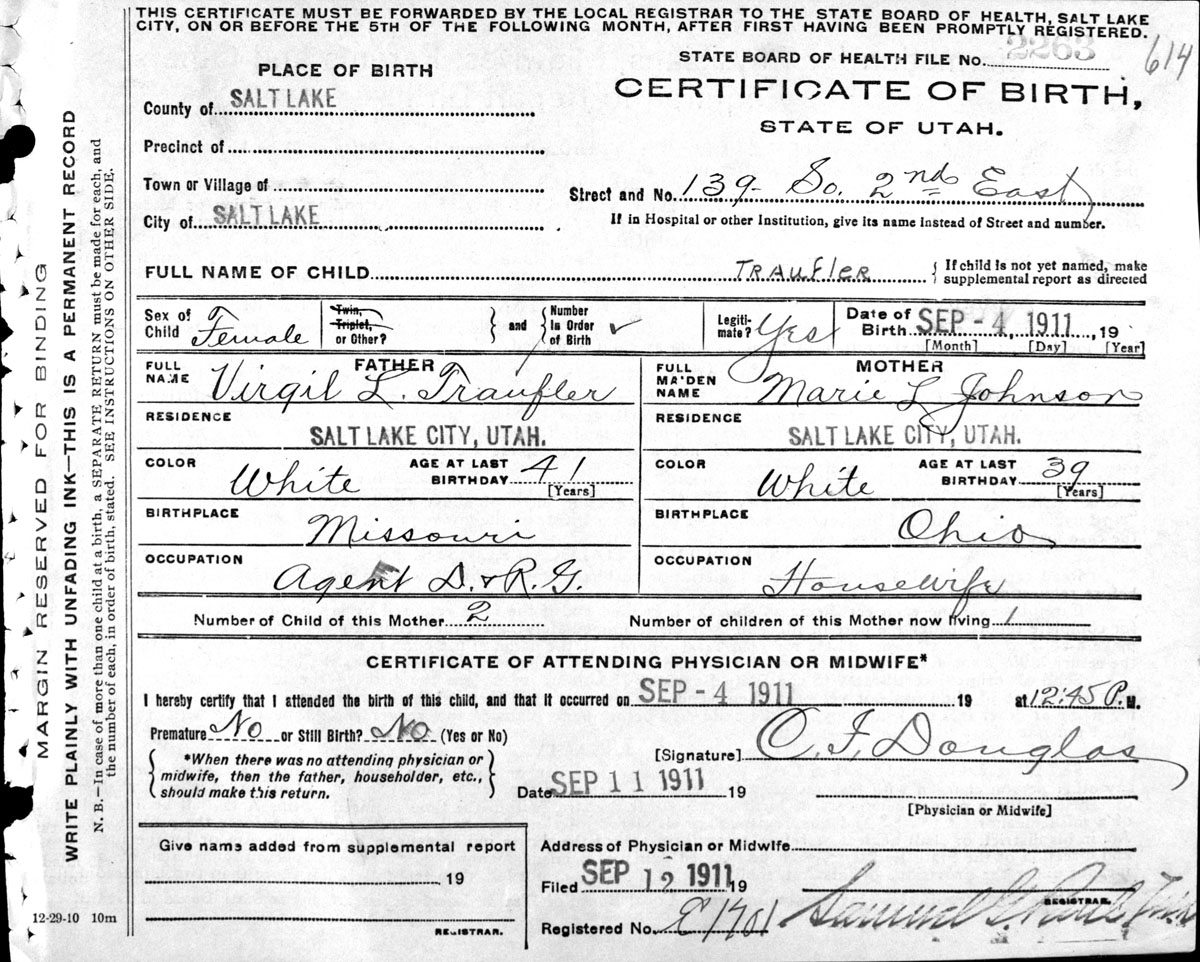 THIS CERTIFICATE MUST BE FORWARDED BY THE LOCAL REGISTRAR TO THE STATE BOARD OF HEALTH, SALT LAKE
CITY, ON OR BEFORE THE 5TH OF THE FOLLOWING MONTH, AFTER FIRST HAVING BEEN PROMPTLY REGISTERED.
STATE BOARD OF HEALTH FILE No. 2263 614
PLACE OF BIRTH
CERTIFICATE OF BIRTH,
STATE OF UTAH.
County of SALT LAKE
Precinct of
Town or Village of
Street and No. 139 - So. 2nd East
City of SALT LAKE
If in Hospital or other Institution, give its name instead of Street and number.
FULL NAME OF CHILD TRAUFLER { If child is not yet named, make
supplemental report as directed
Sex of Child Female
Twin, Triplet, or Other?
} and { Number In Order of Birth ✓
Legiti-mate? Yes
Date of Birth SEP - 4 1911, 19
[Month] [Day] [Year]
FATHER
FULL NAME Virgil L. Traufler
MOTHER
FULL MAIDEN NAME Marie L Johnson
RESIDENCE
SALT LAKE CITY, UTAH.
RESIDENCE
SALT LAKE CITY, UTAH.
COLOR White
AGE AT LAST BIRTHDAY 41
[Years]
COLOR White
AGE AT LAST BIRTHDAY 39
[Years]
BIRTHPLACE
Missouri
BIRTHPLACE
Ohio
OCCUPATION
Agent D. & R. G.
OCCUPATION
Housewife
Number of Child of this Mother 2
Number of children of this Mother now living 1
CERTIFICATE OF ATTENDING PHYSICIAN OR MIDWIFE*
I hereby certify that I attended the birth of this child, and that it occurred on SEP - 4 1911 19 at 12:45 P. M.
Premature No or Still Birth? No (Yes or No)
[Signature] C. F. Douglas
{ *When there was no attending physician or
midwife, then the father, householder, etc.,
should make this return. }
Date SEP 11 1911 19
[Physician or Midwife]
Give name added from supplemental report
19
REGISTRAR.
Address of Physician or Midwife
Filed SEP 12 1911 19
REGISTRAR.
Registered No. E1701 Samuel G.
12-29-10 10m
MARGIN RESERVED FOR BINDING
WRITE PLAINLY WITH UNFADING INK—THIS IS A PERMANENT RECORD
N. B.—In case of more than one child at a birth, a SEPARATE RETURN must be made for each, and
the number of each, in order of birth, stated. SEE INSTRUCTIONS ON OTHER SIDE.